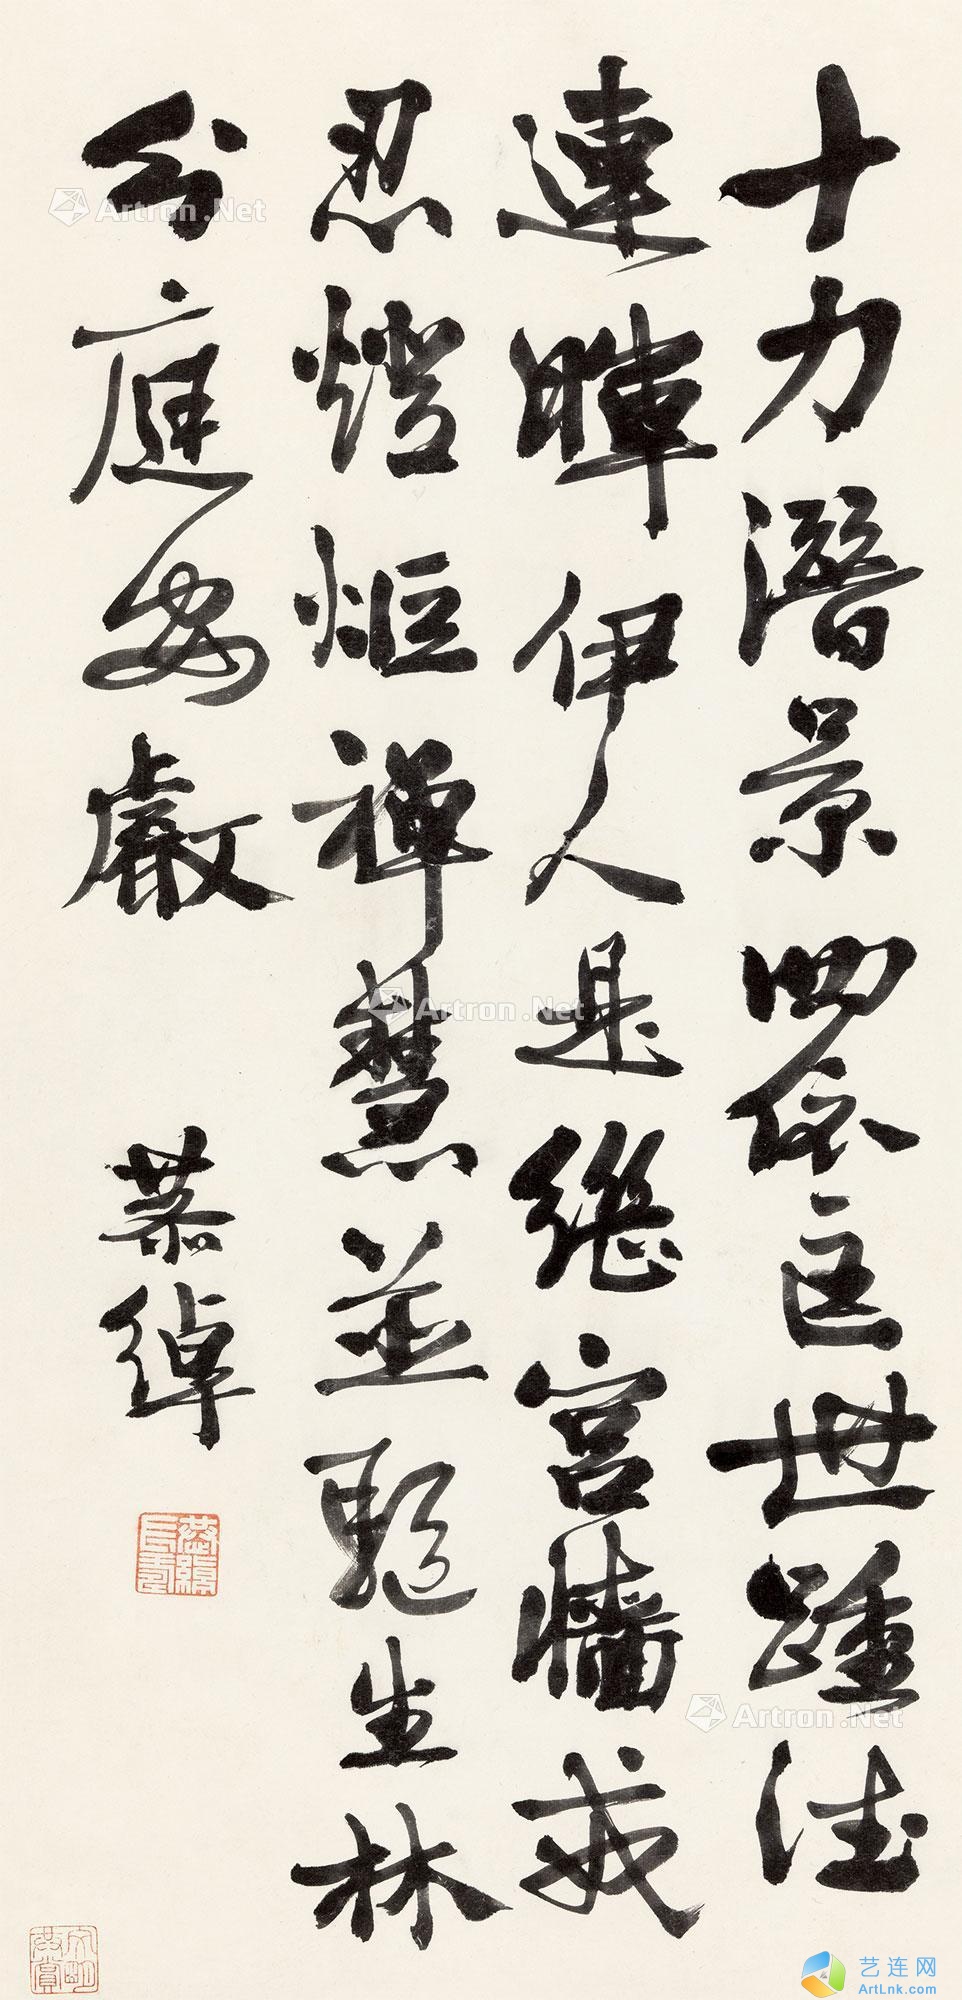 十力潛景四依匡世踵德
連暉伊人是繼宮牆戒
忍燈炬禪慧並驅生林
分庭安巖
恭綽
Artron.Net
Artron.Net
Artron.Net
艺连网
ArtLnk.com